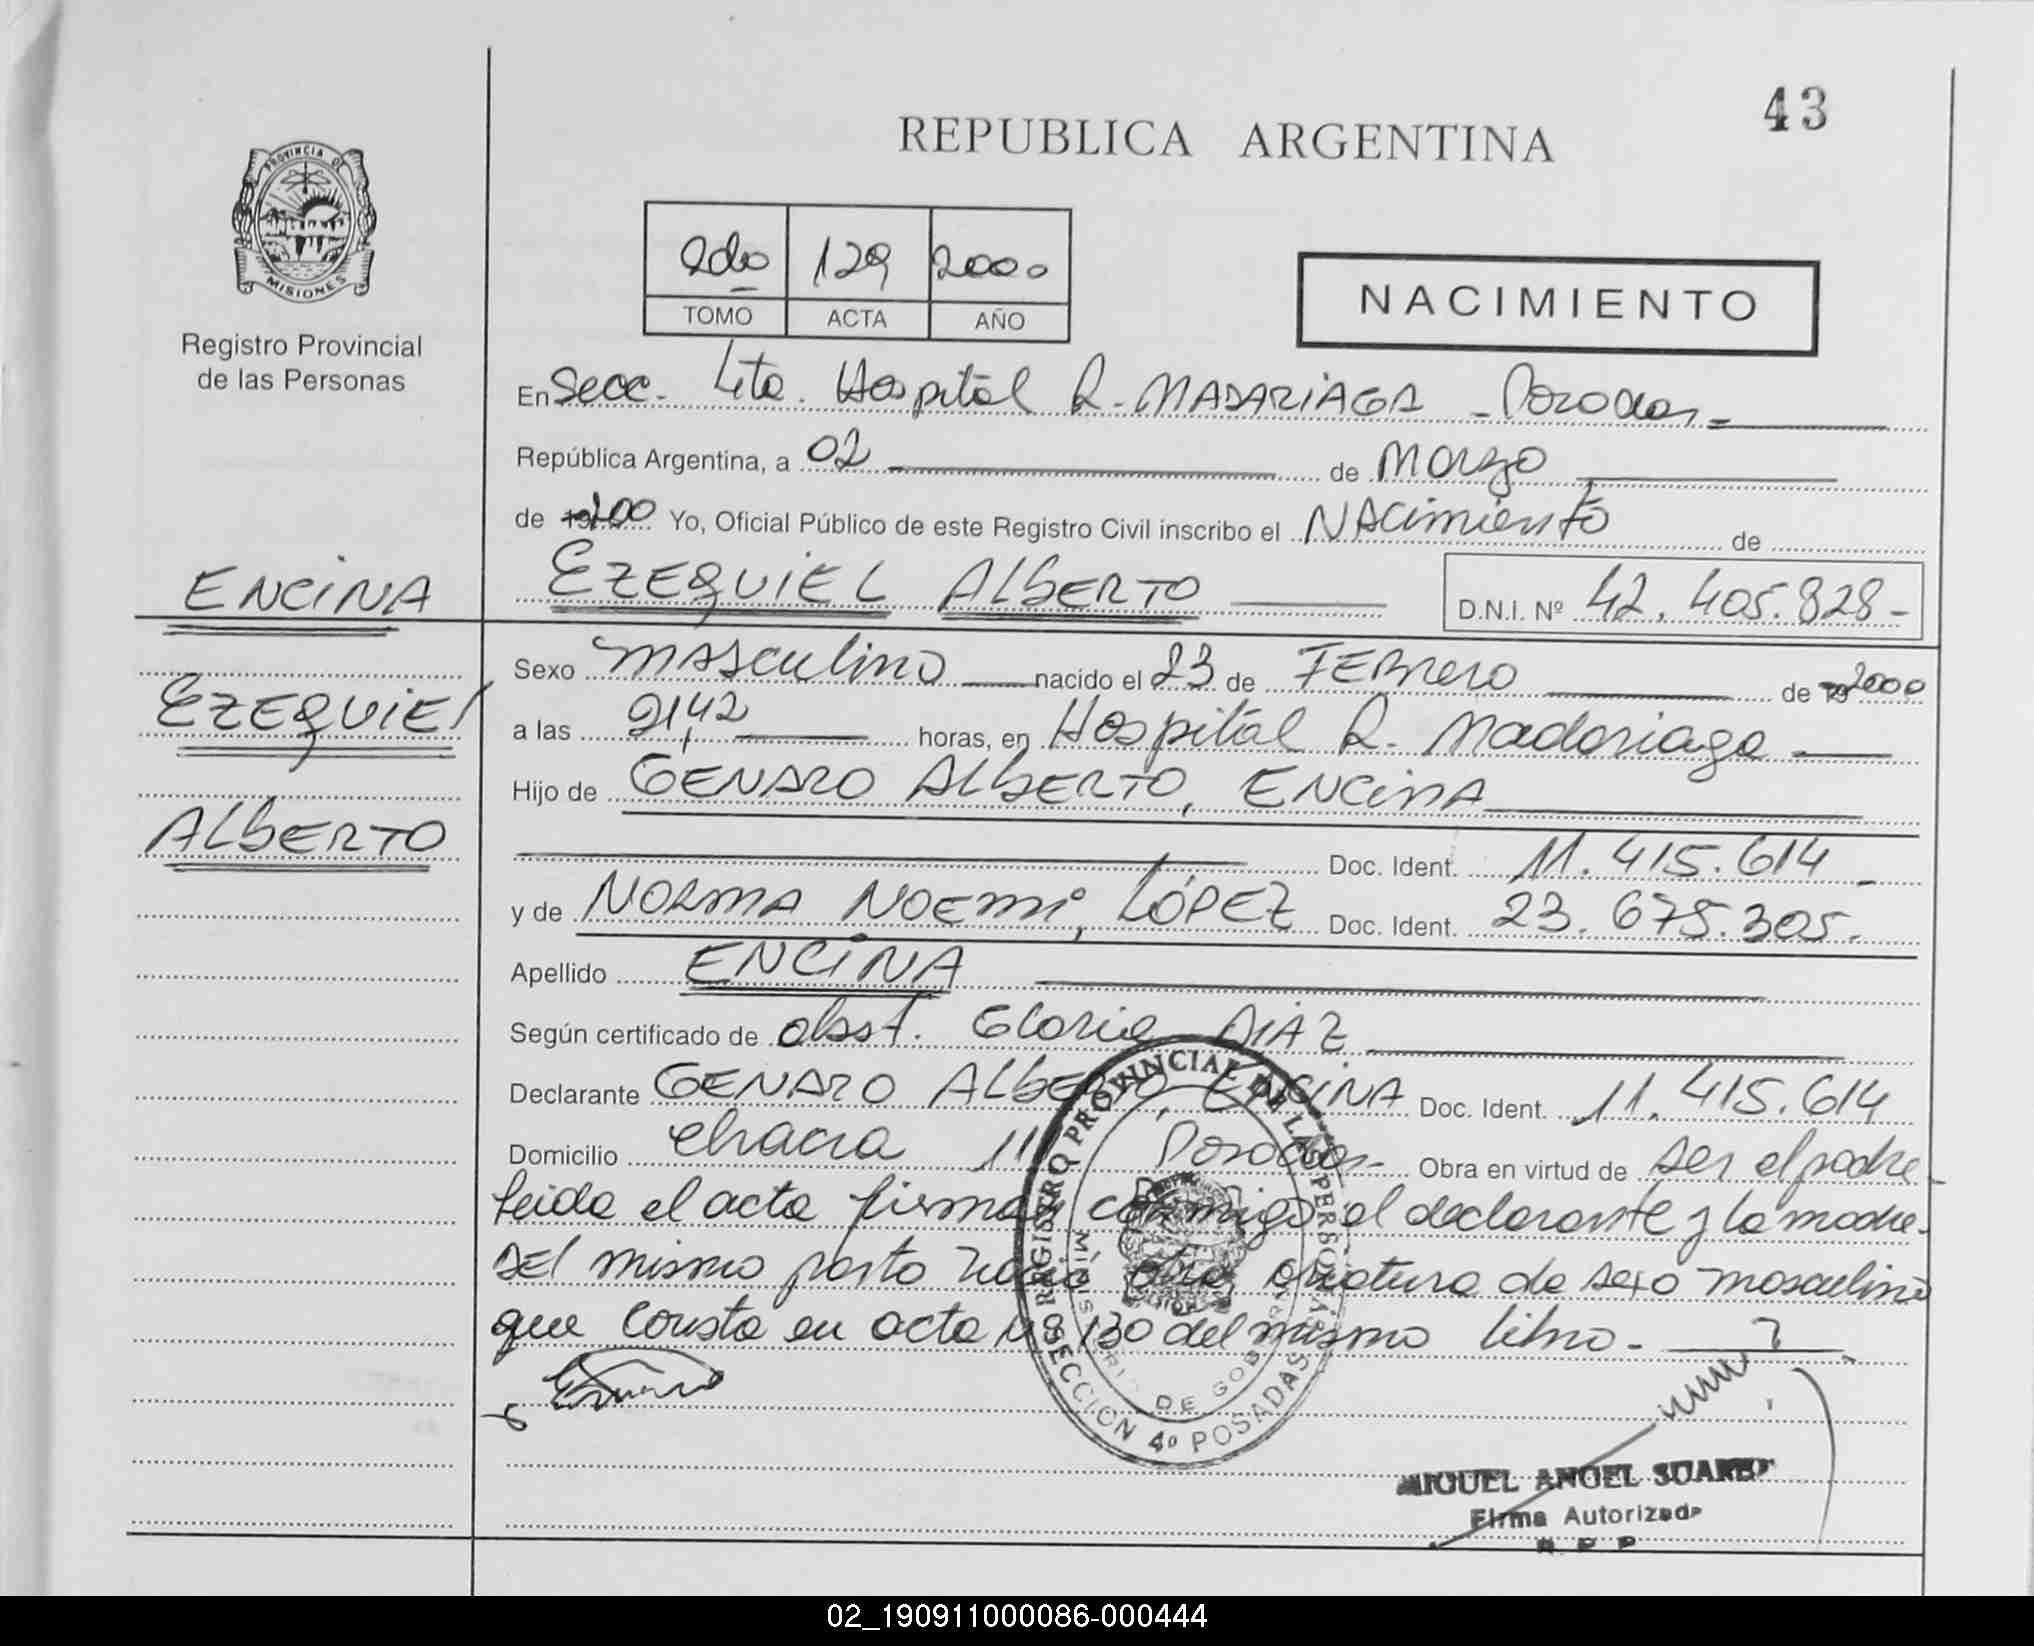 43
REPUBLICA ARGENTINA
PROVINCIA DE
MISIONES
Registro Provincial
de las Personas
2do 129 2000
TOMO ACTA AÑO
NACIMIENTO
En Secc. 4ta. Hospital R. MADARIAGA - Posadas -
República Argentina, a 02 de Marzo
de 19 200 Yo, Oficial Público de este Registro Civil inscribo el NAcimiento de
ENCINA
EZEQUIEL ALBERTO D.N.I. Nº 42.405.828-
Sexo MASCULINO nacido el 23 de FEBRERO de 19 2000
EZEQUIEL
a las 21,42 horas, en Hospital R. Madariaga -
Hijo de GENARO ALBERTO, ENCINA
ALBERTO
Doc. Ident. 11.415.614 -
y de NORMA NOEMI, LÓPEZ Doc. Ident. 23.675.305.
Apellido ENCINA
Según certificado de obst. Gloria DIAZ
Declarante GENARO ALBERTO, ENCINA Doc. Ident. 11.415.614
Domicilio chacra 111 Posadas - Obra en virtud de ser el padre -
Leida el acta firman conmigo el declarante y la madre.
DEl mismo parto nació otra criatura de sexo masculino
que consta en acta Nº 130 del mismo libro. -
REGISTRO PROVINCIAL DE LAS PERSONAS
MINISTERIO DE GOBIERNO
SECCION 4º POSADAS
MIGUEL ANGEL SUAREZ
Firma Autorizada
R. P. P.
02_190911000086-000444